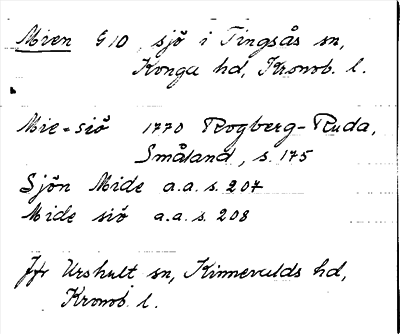 Mien G10, sjö i Tingsås sn,
Konga hd, Kronob. l.
Mie-siö 1770 Rogberg-Ruda,
Småland, s. 175
Sjön Mide a.a. s. 207
Mide siö a.a. s. 208
Jfr Urshult sn, Kinnevalds hd,
Kronob. l.